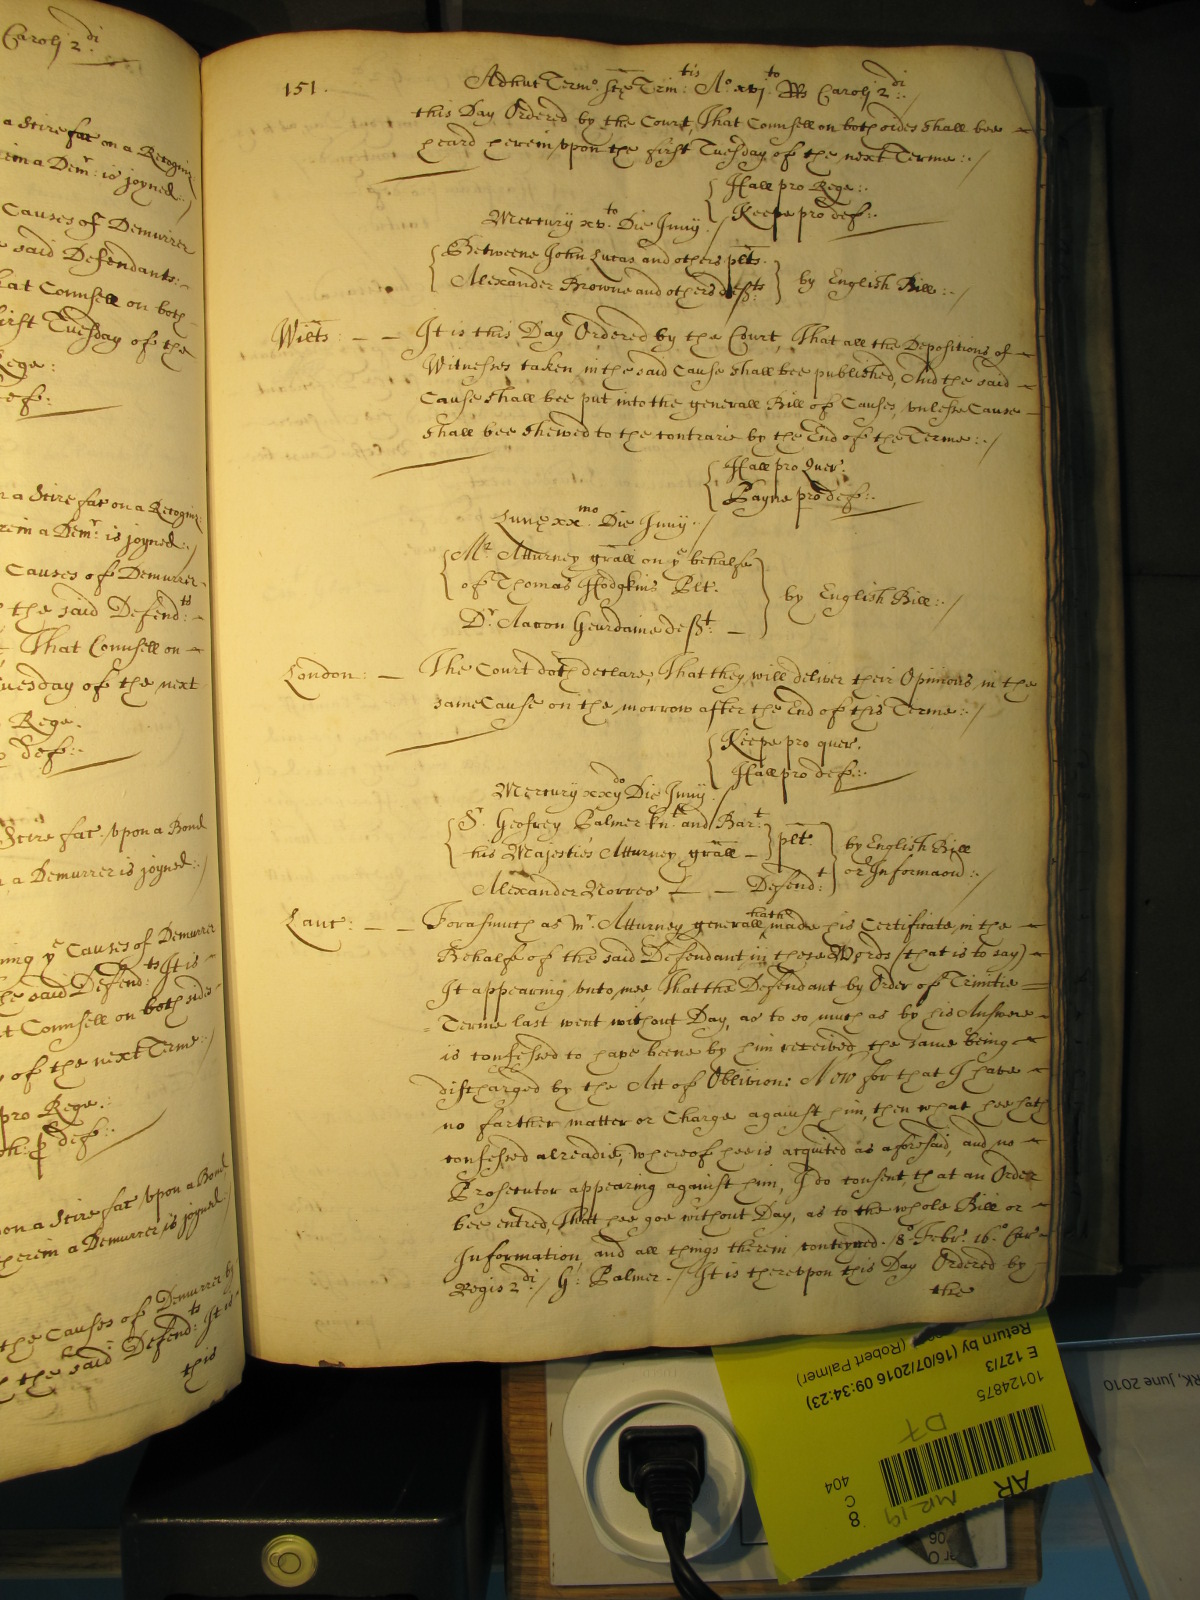 Carolj 2di
a Scire fac on a Recogniz
rein a Demr: is joyned:/
Causes of Demurrer
said Defendants:
hat Counsell on both
first Tuesday of the
Rege:
deft:
n a Scire fac on a Recogniz
rein a Demr: is joyned:/
Causes of Demurrer
the said Defendts:
That Counsell on
uesday of the next
Rege.
deft:.
Scire fac vpon a Bond
n a Demurrer is joyned:/
ye Causes of Demurrer
he said Defendts: It is
t Counsell on both sides
of the next Terme:/
pro Rege.
deft:.
on a Scire fac vpon a Bond
herein a Demurrer is joyned:/
the Causes of Demurrer by
the said Defendts: It is
this
151.
Adhuc Termo. Ste Trin:tis Ao. xvjto. Rs Carolj 2di:.
this Day Ordered by the Court, That Counsell on both sides shall bee
heard herein vpon the first Tuesday of the next Terme:./
Hall pro Rege:.
Keepe pro deft:.
Mercury xvto. Die Junij./
Betweene John Lucas and others plts.
Alexander Browne and others defts:
by English Bill:./
Wilts: It is this Day Ordered by the Court, That all the Depositions of
Witnesses taken in the said Cause shall bee published, And the said
Cause shall bee put into the generall Bill of Causes, vnlesse Cause
shall bee shewed to the contrarie by the End of the Terme:./
Hall pro Quer.
Payne pro deft:.
Lune xxmo. Die Junij./
Mr. Atturney grall on ye behalfe
of Thomas Hodgkins Plt.
Dr. Aaron Geurdaine deft.
by English Bill:./
London: The Court doth declare, That they will deliver their Opinions, in the
same Cause on the morrow after the End of this Terme:./
Keepe pro quer.
Hall pro deft:.
Mercury xxijdo Die Junij./
Sr. Geofrey Palmer knt. and Bart.
his Majesties Atturney grall
plt.
Alexander Norres Defendt:
by English Bill
or Informacon:./
Lanc: Forasmuch as Mr. Atturney generall hath made his Certificate, in the
Behalfe of the said Defendant in these Words (that is to say)
It appearing vnto mee That the Defendant by Order of Trinitie
Terme last went without Day, as to so much as by his Answere
is confessed to have beene by him received, the same being
discharged by the Act of Oblivion: Now for that I have
no farther matter or Charge against him, then what hee hath
confessed alreadie, whereof hee is acquited as aforesaid, and no
Prosecutor appearing against him, I do consent, that an Order
bee entred, That hee goe without Day, as to the whole Bill or
Information, and all things therein conteyned. 8o. Febr. 16o. Car
Regis 2di./ G: Palmer./ It is therevpon this Day Ordered by
the
Return by (16/07/2016 09:34:23)
(Robert Palmer)
E 127/3
10124875
RK, June 2010
D7
AR
MR 19
404
C
8